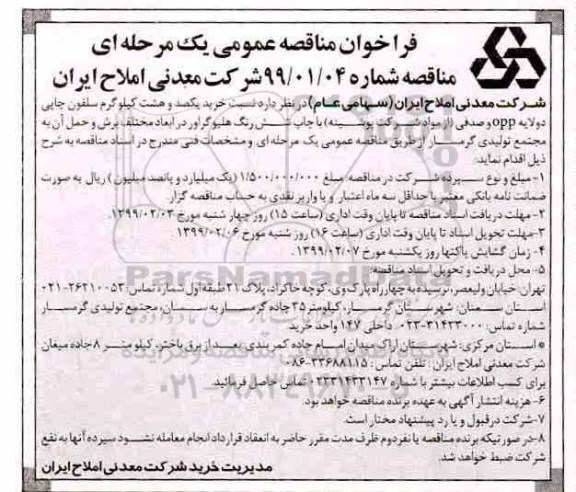 فراخوان مناقصه عمومی یک مرحله ای
مناقصه شماره ۹۹/۰۱/۰۴ شرکت معدنی املاح ایران
شرکت معدنی املاح ایران (سهامی عام) در نظر دارد نسبت خرید یکصد و هشت کیلوگرم سلفون چاپی
دولایه opp و صدفی (از مواد شرکت پوشینه) با چاپ شش رنگ هلیوگراور در ابعاد مختلف برش و حمل آن به
مجتمع تولیدی گرمسار از طریق مناقصه عمومی یک مرحله ای و مشخصات فنی مندرج در اسناد مناقصه به شرح
ذیل اقدام نماید:
۱- مبلغ و نوع سپرده شرکت در مناقصه: مبلغ ۱/۵۰۰/۰۰۰/۰۰۰ (یک میلیارد و پانصد میلیون) ریال به صورت
ضمانت نامه بانکی معتبر با حداقل سه ماه اعتبار و یا واریز نقدی به حساب مناقصه گزار.
۲- مهلت دریافت اسناد مناقصه تا پایان وقت اداری (ساعت ۱۵) روز چهار شنبه مورخ ۱۳۹۹/۰۲/۰۳.
۳-مهلت تحویل اسناد تا پایان وقت اداری (ساعت ۱۶) روز شنبه مورخ ۱۳۹۹/۰۲/۰۶.
۴- زمان گشایش پاکتها روز یکشنبه مورخ ۱۳۹۹/۰۲/۰۷.
۵- محل دریافت و تحویل اسناد مناقصه:
تهران: خیابان ولیعصر، نرسیده به چهارراه پارک وی، کوچه خاکزاد، پلاک ۲۱ طبقه اول شماره تماس: ۲۶۲۱۰۰۵۳-۰۲۱
استان سمنان: شهرستان گرمسار، کیلومتر ۳۵ جاده گرمسار به سمنان، مجتمع تولیدی گرمسار
شماره تماس: ۳۱۴۳۳۰۰۰-۰۲۳ داخلی ۱۴۷ واحد خرید.
* استان مرکزی: شهرستان اراک میدان امام جاده کمربندی، بعد از برق باختر، کیلومتر ۸ جاده میغان
شرکت معدنی املاح ایران: تلفن تماس: ۳۳۶۸۸۱۱۵-۰۸۶
برای کسب اطلاعات بیشتر با شماره ۰۲۳۳۱۴۳۳۱۴۷ تماس حاصل فرمائید.
۶- هزینه انتشار آگهی به عهده برنده مناقصه خواهد بود.
۷-شرکت در قبول و یا رد پیشنهاد مختار است.
۸-در صورتیکه برنده مناقصه یا نفر دوم ظرف مدت مقرر حاضر به انعقاد قرارداد انجام معامله نشود سپرده آنها به نفع
شرکت ضبط خواهد شد.
مدیریت خرید شرکت معدنی املاح ایران
ParsNamadData